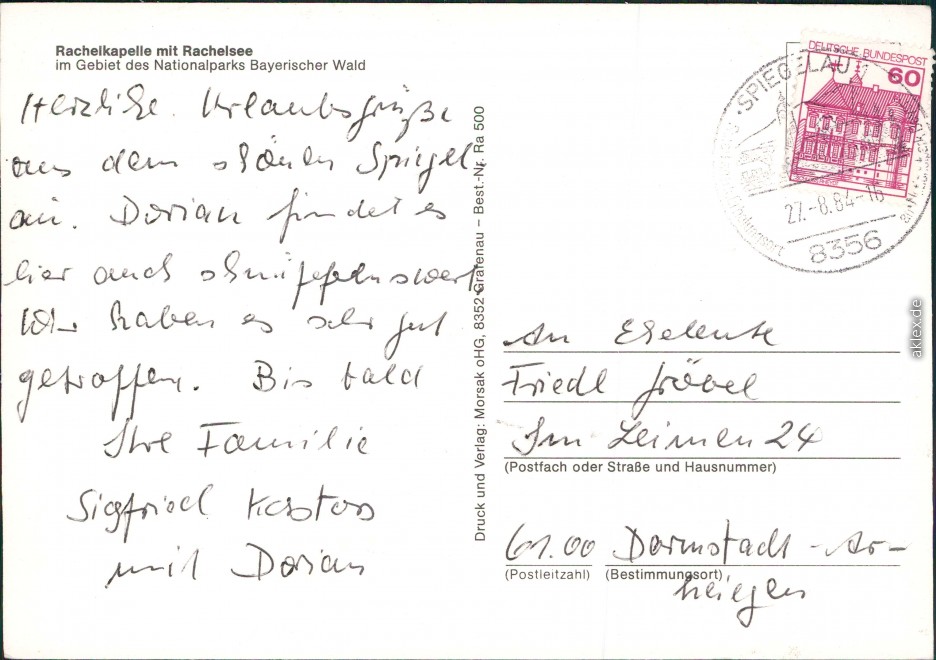 Rachelkapelle mit Rachelsee
im Gebiet des Nationalparks Bayerischer Wald
Herzliche Urlaubsgrüße
aus dem schönen Spiegel
au. Dorian findet es
hier auch schnüffelnswert.
Wir haben es sehr gut
getroffen. Bis bald
Ihre Familie
Sigfried
mit Dorian
Druck und Verlag: Morsak oHG, 8352 Grafenau – Best.-Nr. Ra 500
DEUTSCHE BUNDESPOST
60
SPIEGELAU
27.-8.84-16
8356
An Eheleute
Friedl Gröbel
Im Leimen 24
(Postfach oder Straße und Hausnummer)
61.00 Darmstadt - Ar-
(Postleitzahl) (Bestimmungsort)
heilgen
aklex.de